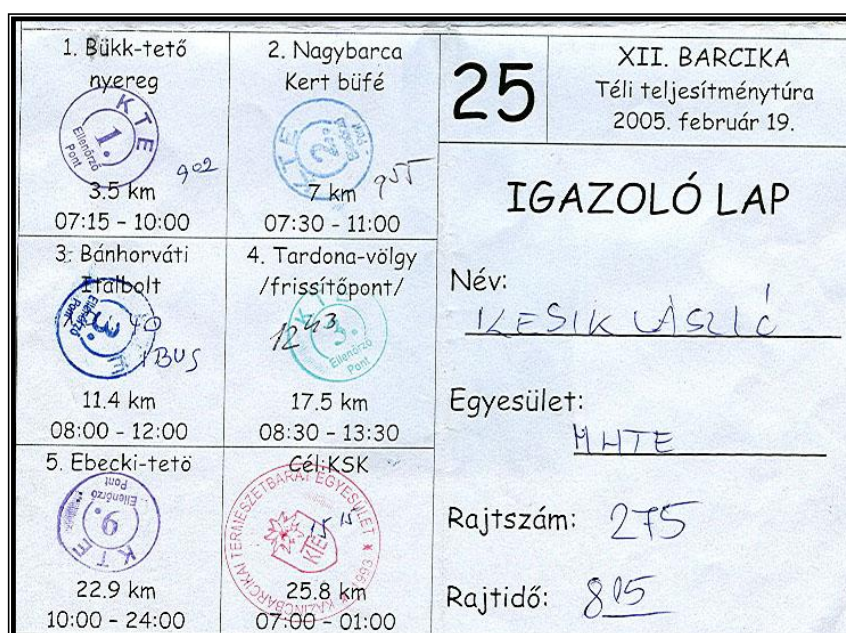 1. Bükk-tető
nyereg
KTE
1.
Ellenőrző
Pont
902
3.5 km
07:15 - 10:00
2. Nagybarca
Kert büfé
KTE
2.
Ellenőrző
Pont
955
7 km
07:30 - 11:00
3. Bánhorváti
Italbolt
3.
Ellenőrző
Pont
40
IBUS
11.4 km
08:00 - 12:00
4. Tardona-völgy
/frissítőpont/
1243
5.
Ellenőrző
Pont
17.5 km
08:30 - 13:30
5. Ebecki-tetö
Ellenőrző
Pont
KTE
22.9 km
10:00 - 24:00
Cél:KSK
KAZINCBARCIKAI TERMÉSZETBARÁT EGYESÜLET * 1993 *
KTE
15 15
25.8 km
07:00 - 01:00
25
XII. BARCIKA
Téli teljesítménytúra
2005. február 19.
IGAZOLÓ LAP
Név:
KESIK LÁSZLÓ
Egyesület:
MHTE
Rajtszám: 275
Rajtidő: 815